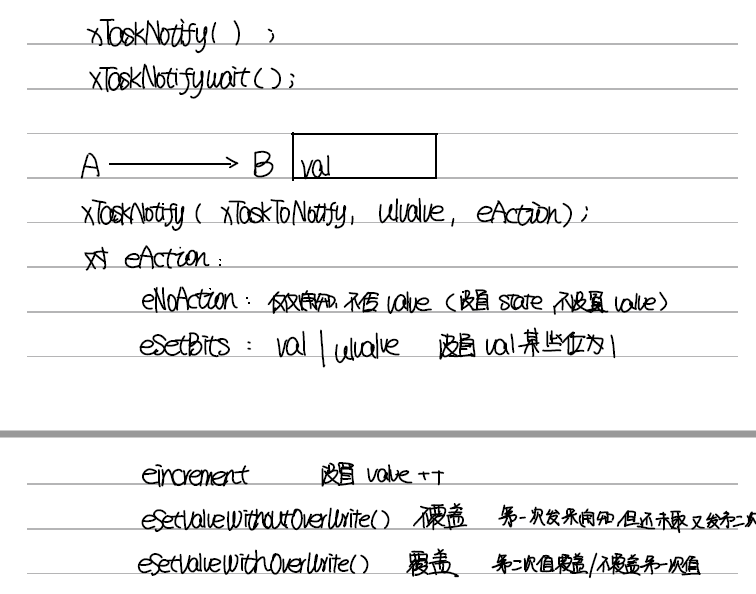 xTaskNotify( ) ;
xTaskNotifywait( );
A → B val
xTaskNotify( xTaskToNotify, ulvalve, eAction);
对 eAction:
eNoAction: 仅仅通知, 不传 value (设置 state, 不设置 value)
eSetBits : val | ulvalve 设置 val 某些位为1
eincrement 设置 valve ++
eSetValueWithoutOverWrite() 不覆盖 第一次发来通知,但还未取又发第二次
eSetValueWithOverWrite() 覆盖 第二次值覆盖/不覆盖第一次值